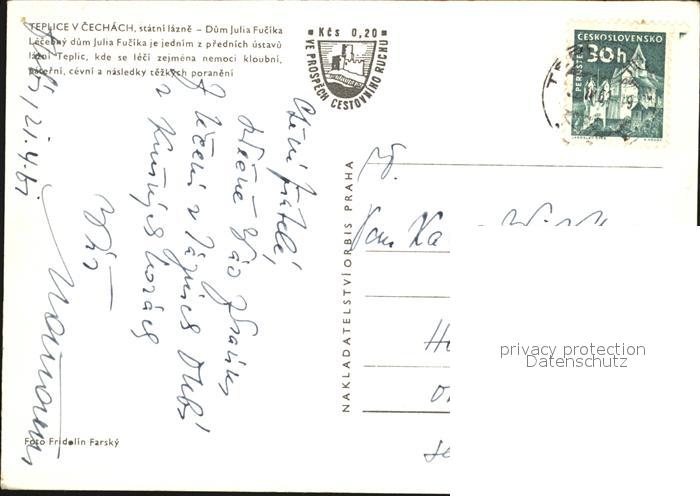 TEPLICE V ČECHÁCH, státní lázně – Dům Julia Fučíka
Léčebný dům Julia Fučíka je jedním z předních ústavů
lázní Teplic, kde se léčí zejména nemoci kloubní,
páteřní, cévní a následky těžkých poranění
Kčs 0,20
VE PROSPĚCH CESTOVNÍHO RUCHU
ČESKOSLOVENSKO
30h
PERNŠTEJN
21.4.61
přátelé,
srdečně Vás zdravím
z léčení v lázních Dubí
v Krušných horách
Váš
NAKLADATELSTVÍ ORBIS PRAHA
Foto Fridolín Farský
privacy protection
Datenschutz